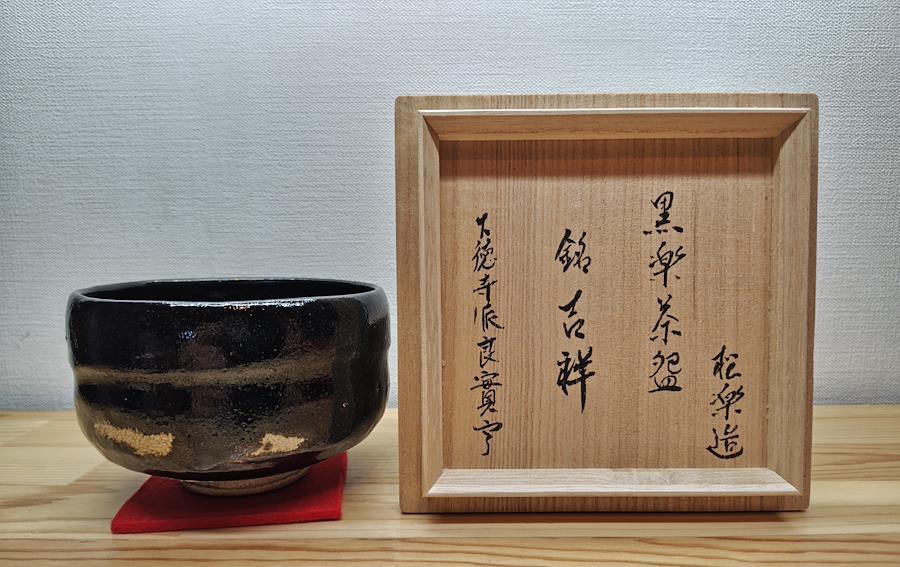 松楽造
黒楽茶碗
銘 吉祥
大徳寺派良實